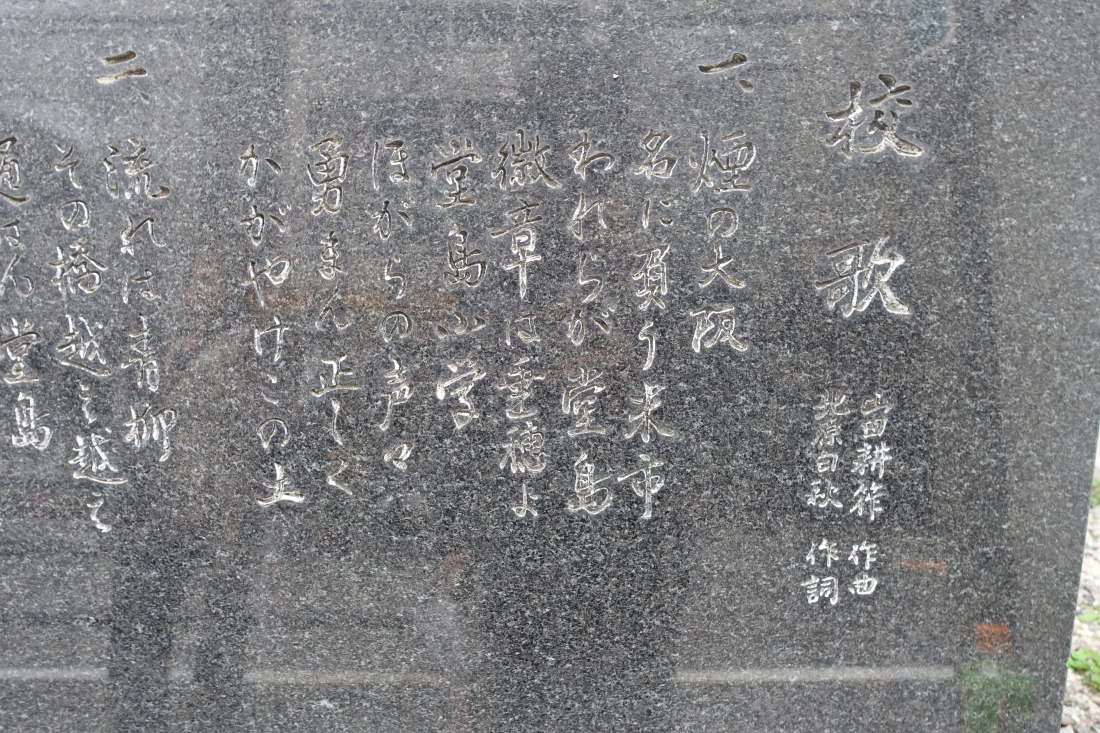 校歌
山田耕筰 作曲
北原白秋 作詞
一、
煙の大阪
名に負う米市
われらが堂島
徽章は垂穂よ
堂島小学
ほがらの声々
勇まん正しく
かがやけこの土
二、
流れは青柳
その橋越え越え
通はん堂島